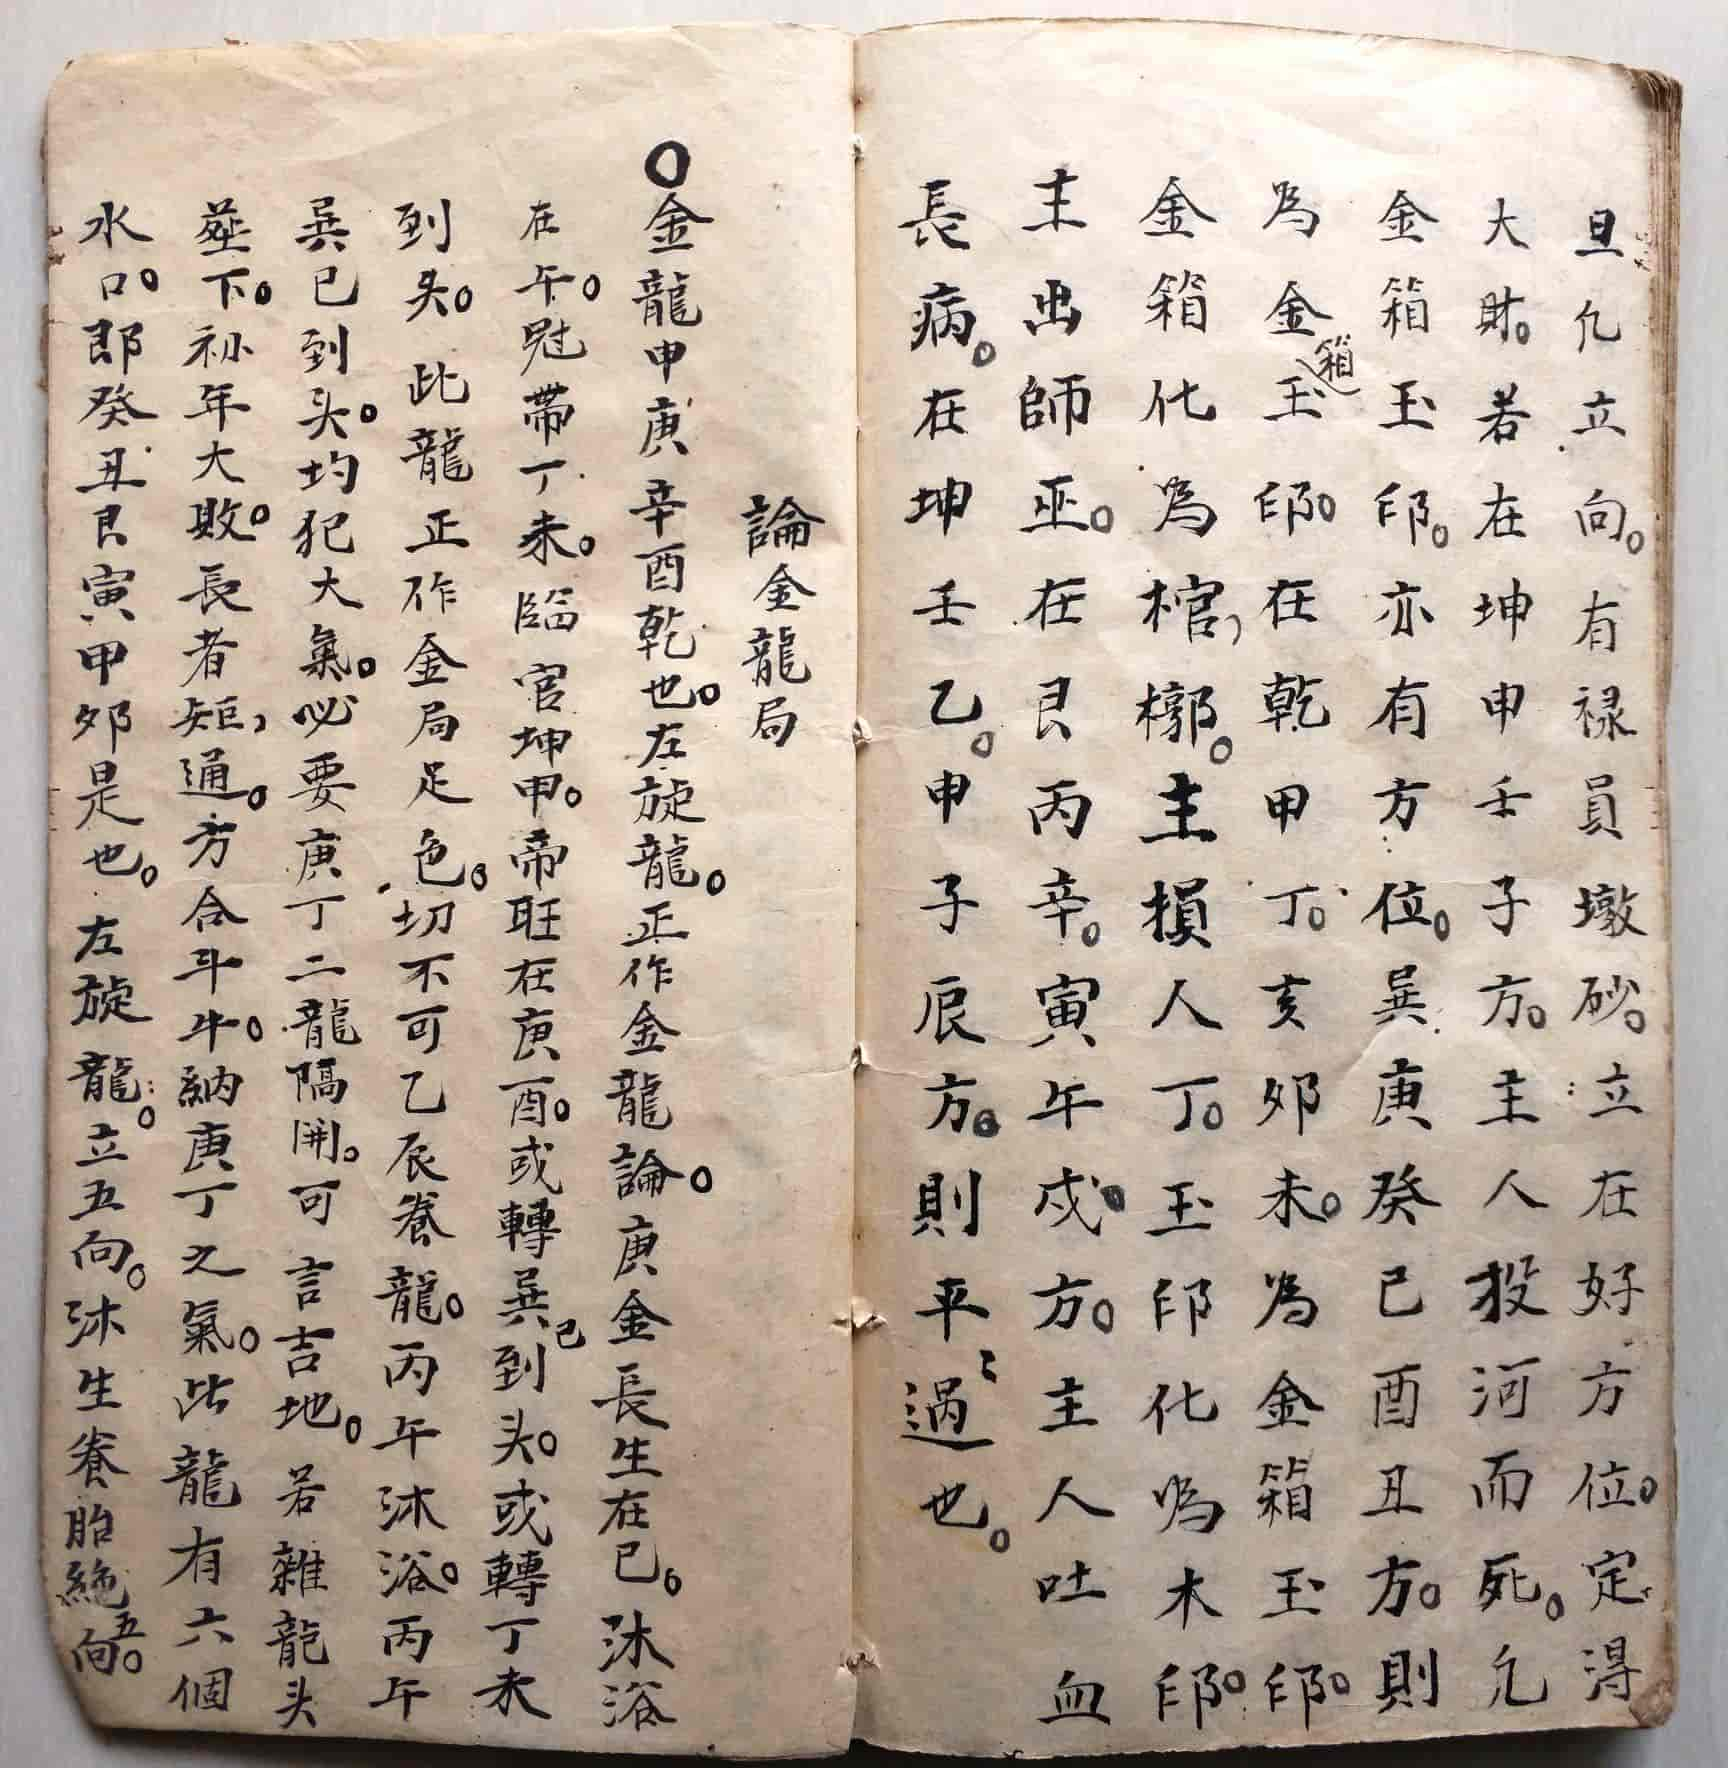 旦凢立向。有禄員墩砂。立在好方位。定淂
大財。若在坤申壬子方。主人投河而死。凢
金箱玉印。亦有方位。巽庚癸巳酉丑方。則
為金箱玉印。在乾甲丁。亥夘未。為金箱玉印。
金箱化為棺槨。主損人丁。玉印化為木印。
主出師巫。在艮丙辛。寅午戍方。主人吐血
長病。在坤壬乙。申子辰方。則平過也。
論金龍局
〇金龍申庚辛酉乾也。左旋龍。正作金龍論。庚金長生在巳。沐浴
在午。冠帶丁未。臨官坤申。帝旺在庚酉。或轉巽巳到头。或轉丁未
到头。此龍正作金局足色。切不可乙辰養龍。丙午沐浴。丙午
巽巳到头。均犯大氣。必要庚丁二龍隔開。可言吉地。若雜龍头
塟下。初年大敗。長者矩通。方合斗牛。納庚丁之氣。此龍有六個
水口。即癸丑艮寅甲夘是也。左旋龍。立五向。沐生養胎絶五向。